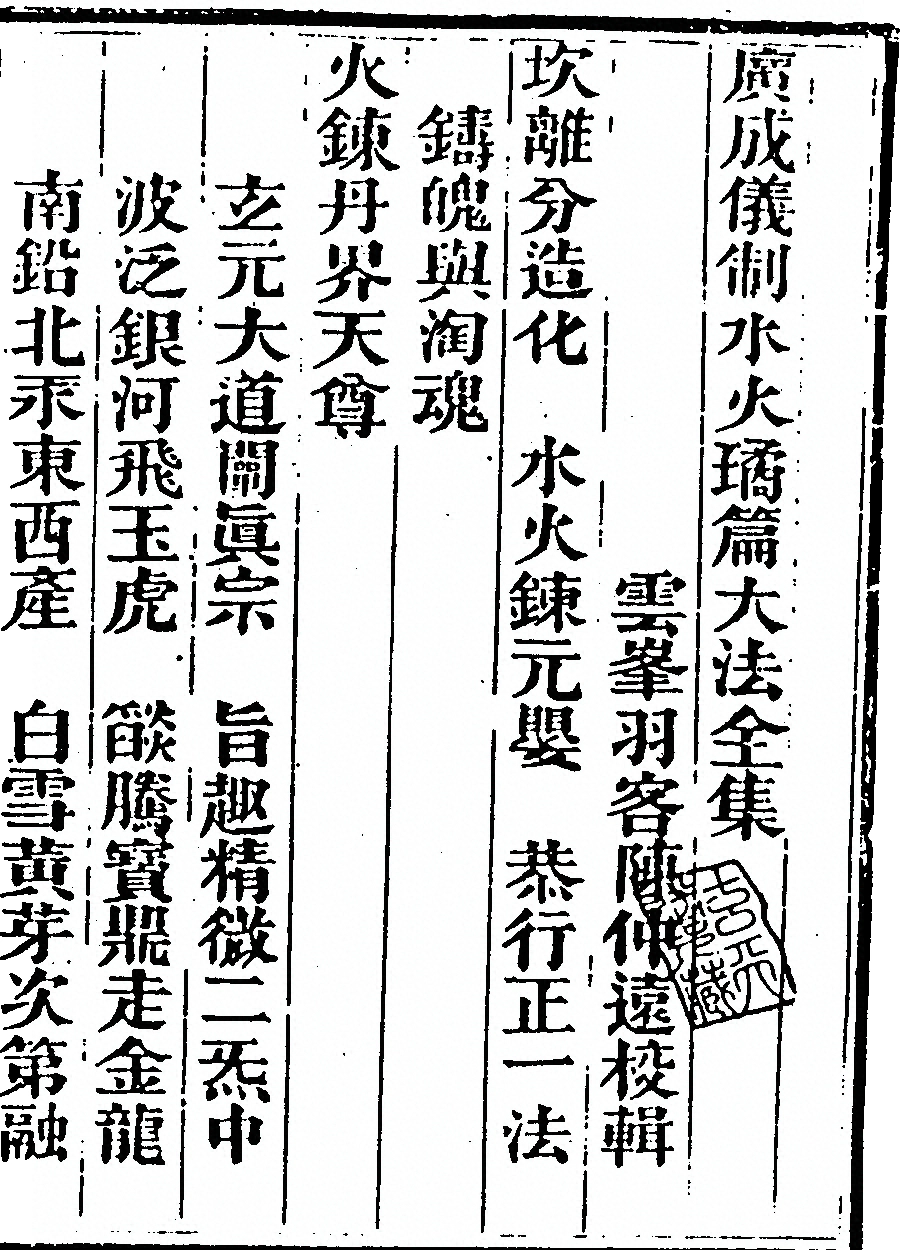 廣成儀制水火璚篇大法全集
雲峯羽客陳仲遠校輯
坎離分造化　水火鍊元嬰　恭行正一法
鑄魄與淘魂
火鍊丹界天尊
玄元大道闡眞宗　旨趣精微二炁中
波泛銀河飛玉虎　燄騰寶鼎走金龍
南鉛北汞東西產　白雪黃芽次第融